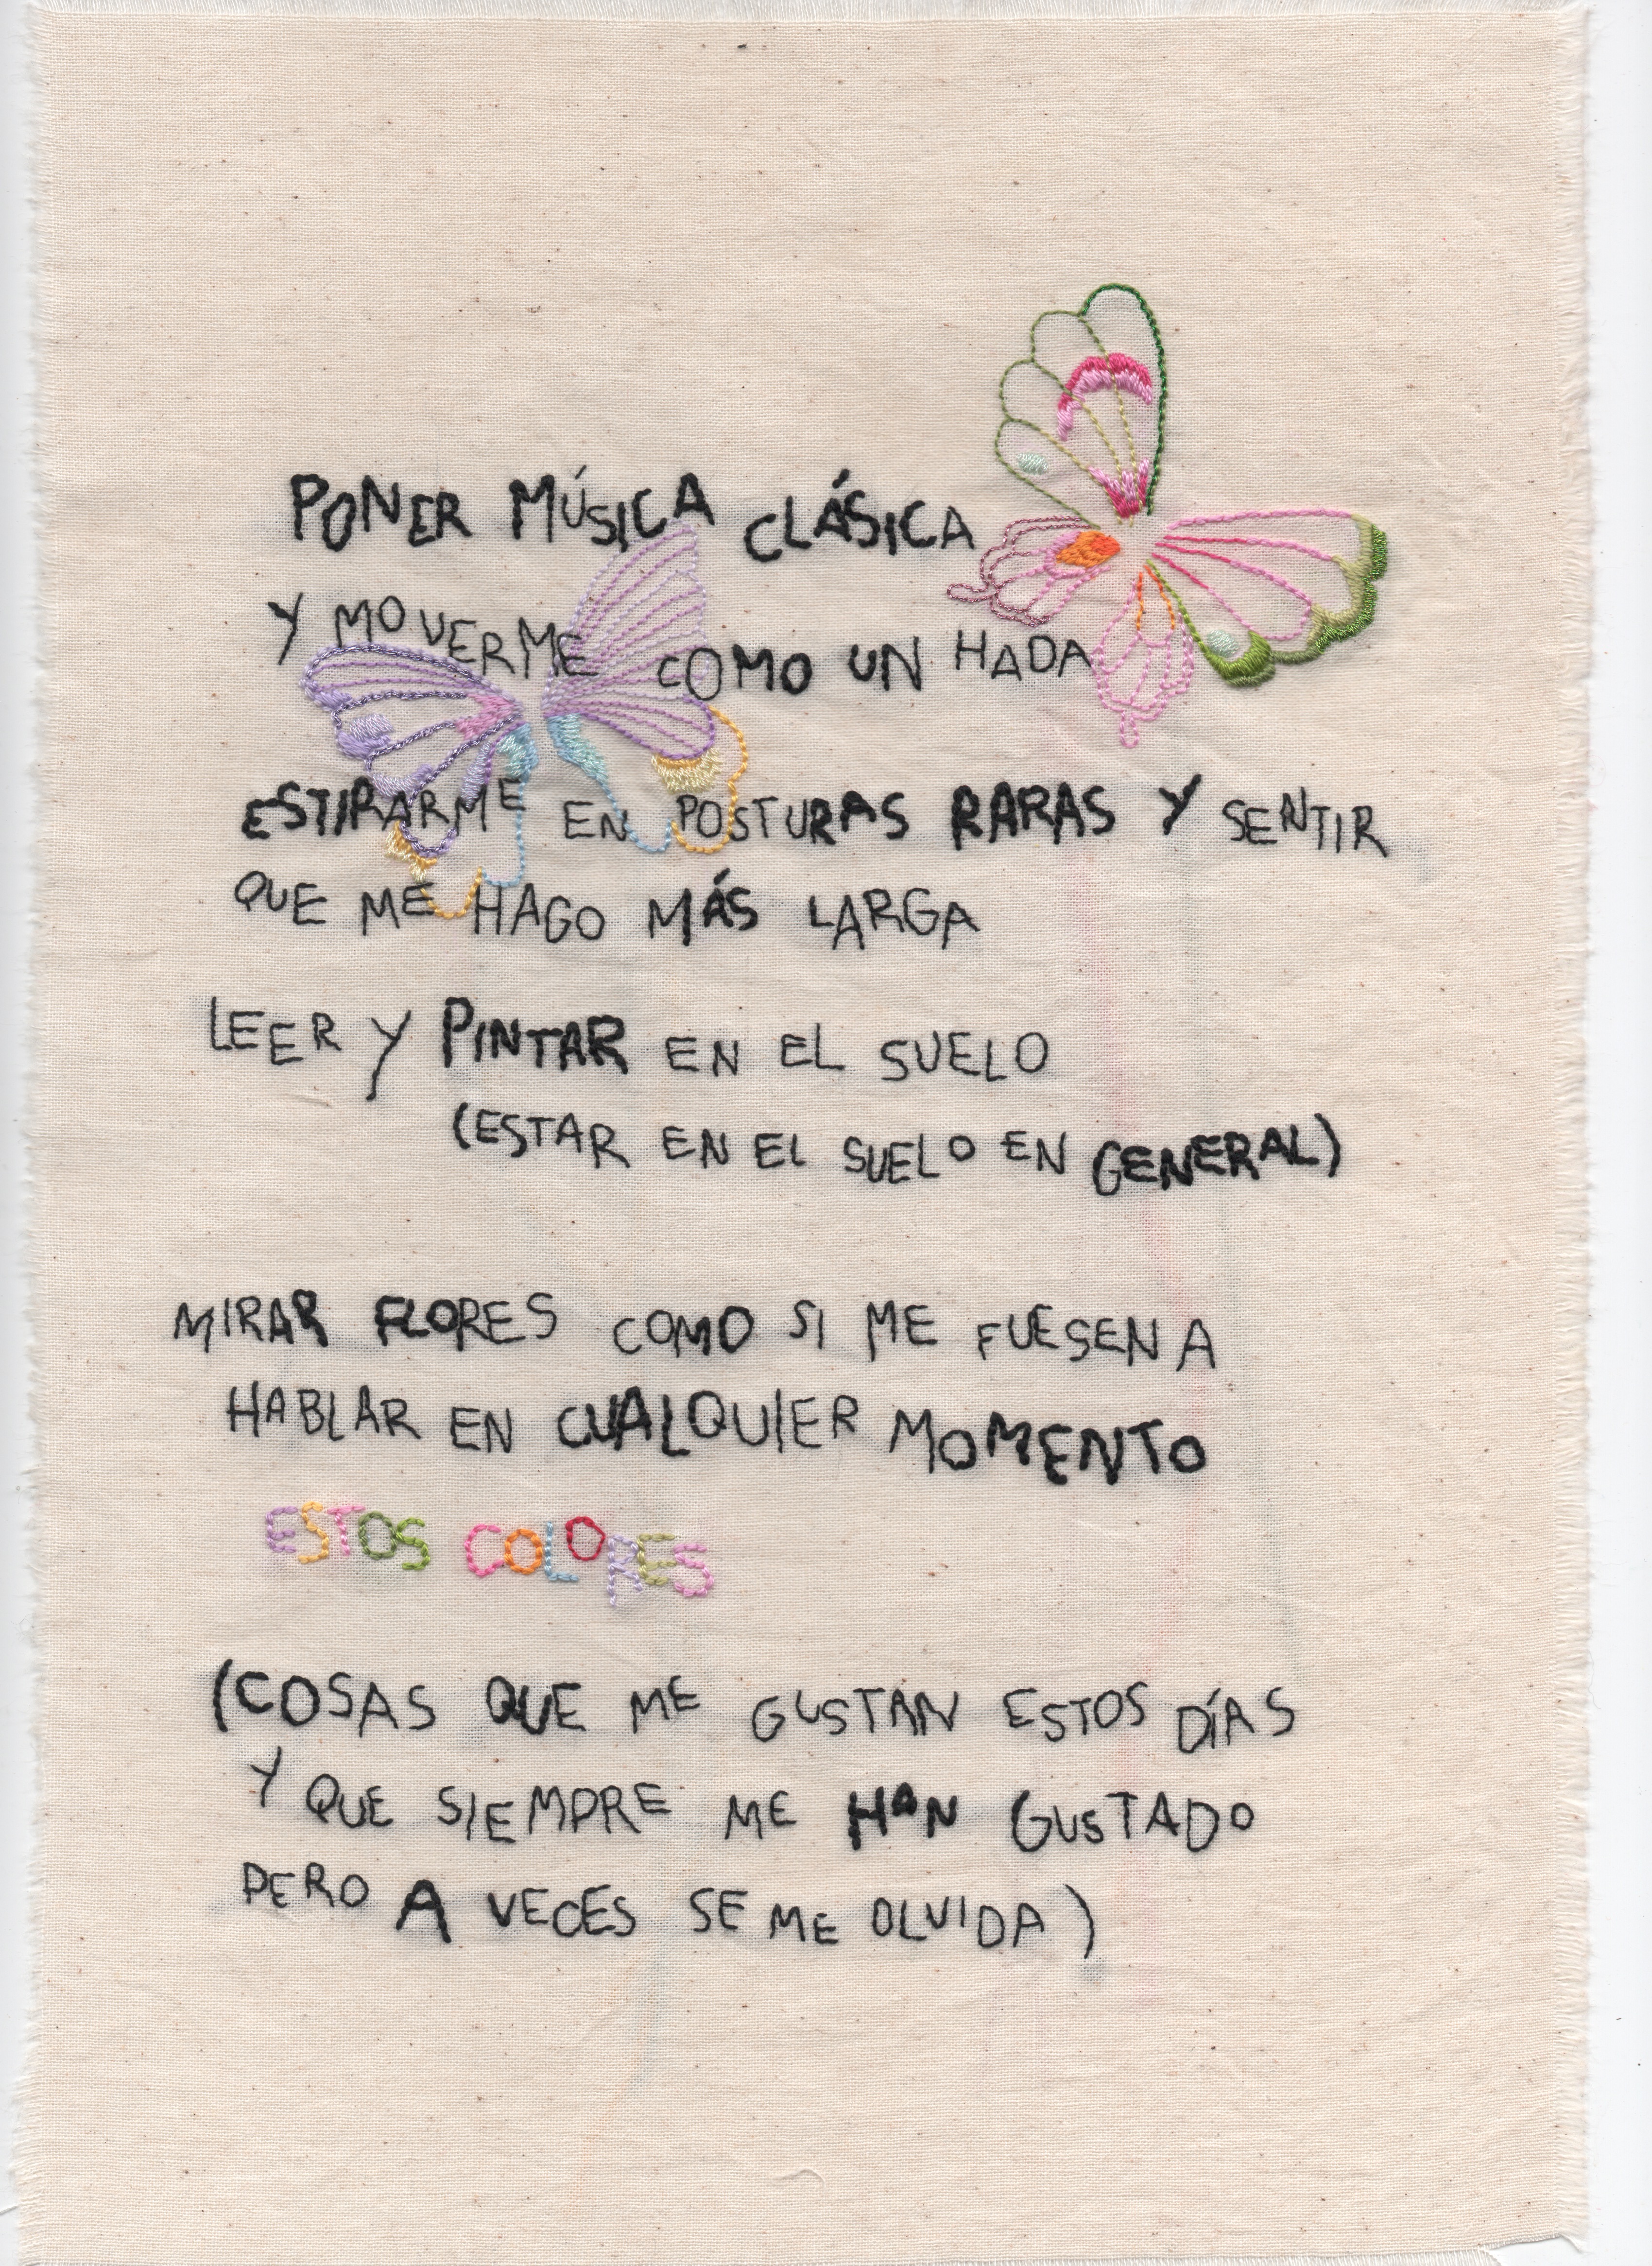 PONER MÚSICA CLÁSICA
Y MOVERME COMO UN HADA
ESTIRARME EN POSTURAS RARAS Y SENTIR
QUE ME HAGO MÁS LARGA
LEER Y PINTAR EN EL SUELO
(ESTAR EN EL SUELO EN GENERAL)
MIRAR FLORES COMO SI ME FUESEN A
HABLAR EN CUALQUIER MOMENTO
ESTOS COLORES
(COSAS QUE ME GUSTAN ESTOS DÍAS
Y QUE SIEMPRE ME HAN GUSTADO
PERO A VECES SE ME OLVIDA)